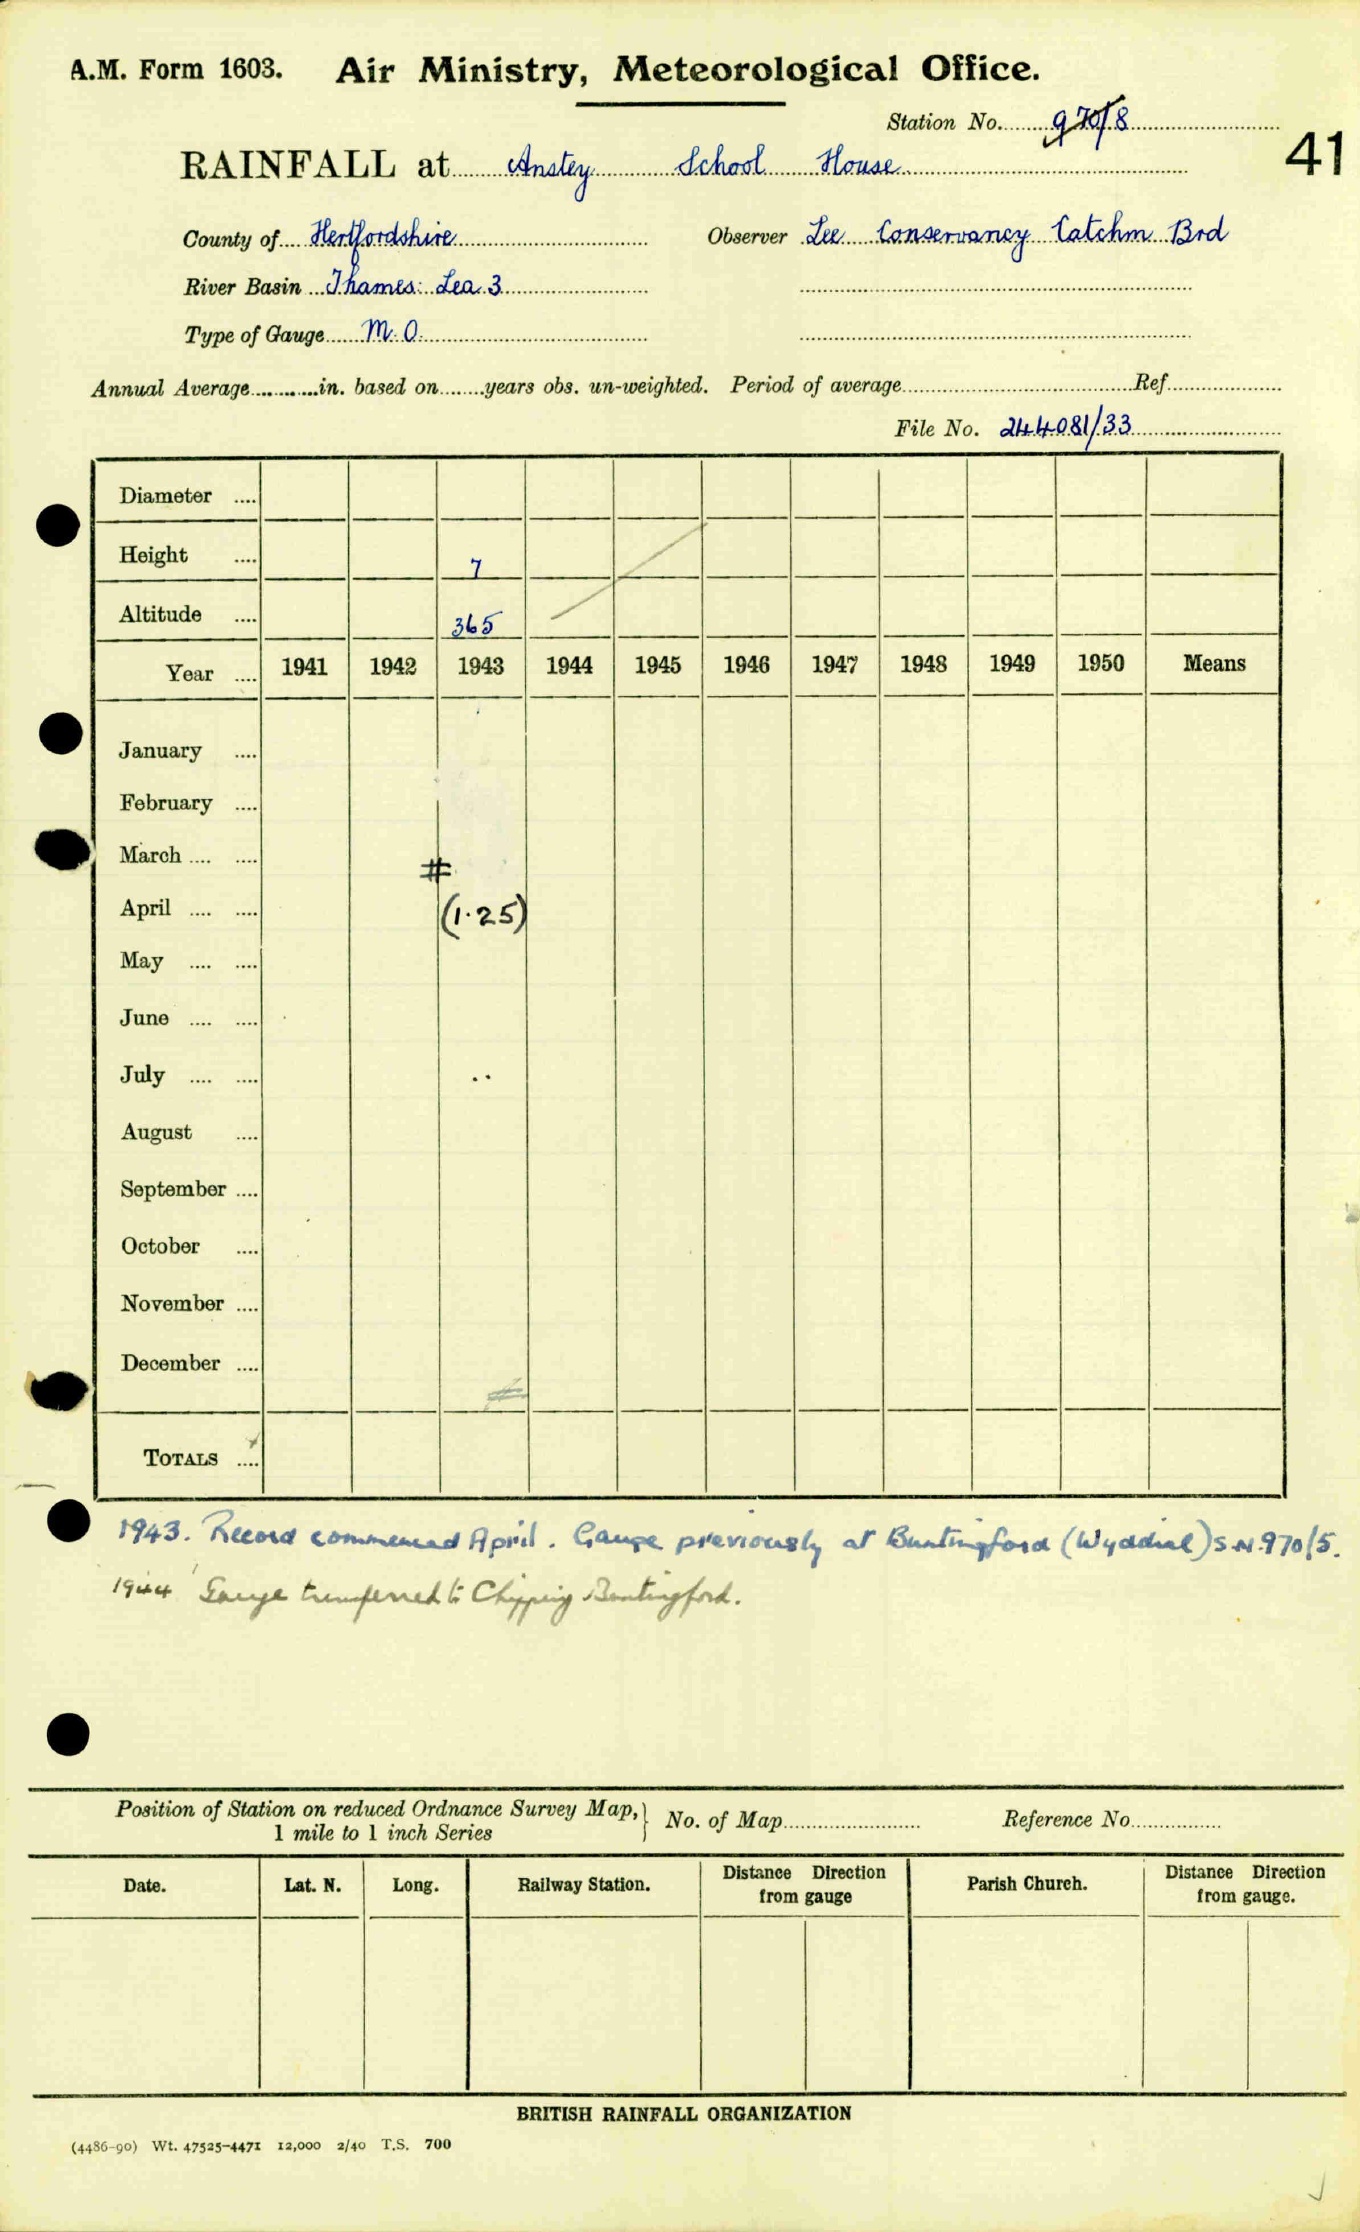 A.M. Form 1603. Air Ministry, Meteorological Office.
Station No. 970/8
41
RAINFALL at Anstey School House
County of Hertfordshire Observer Lee Conservancy Catchm Brd
River Basin Thames: Lea 3
Type of Gauge M.O.
Annual Average..........in. based on........years obs. un-weighted. Period of average Ref
File No. 244081/33
Diameter ....
Height .... 7
Altitude .... 365
Year .... 1941 1942 1943 1944 1945 1946 1947 1948 1949 1950 Means
January ....
February ....
March .... ....
#
April .... .... (1.25)
May .... ....
June .... ....
July .... .... ..
August ....
September ....
October ....
November ....
December ....
#
TOTALS ....
1943. Record commenced April. Gauge previously at Buntingford (Wyddial) S.N. 970/5.
1944 Gauge transferred to Chipping Buntingford.
Position of Station on reduced Ordnance Survey Map, } No. of Map Reference No.
1 mile to 1 inch Series
Date. Lat. N. Long. Railway Station. Distance Direction from gauge Parish Church. Distance Direction from gauge.
BRITISH RAINFALL ORGANIZATION
(4486-90) Wt. 47525-4471 12,000 2/40 T.S. 700